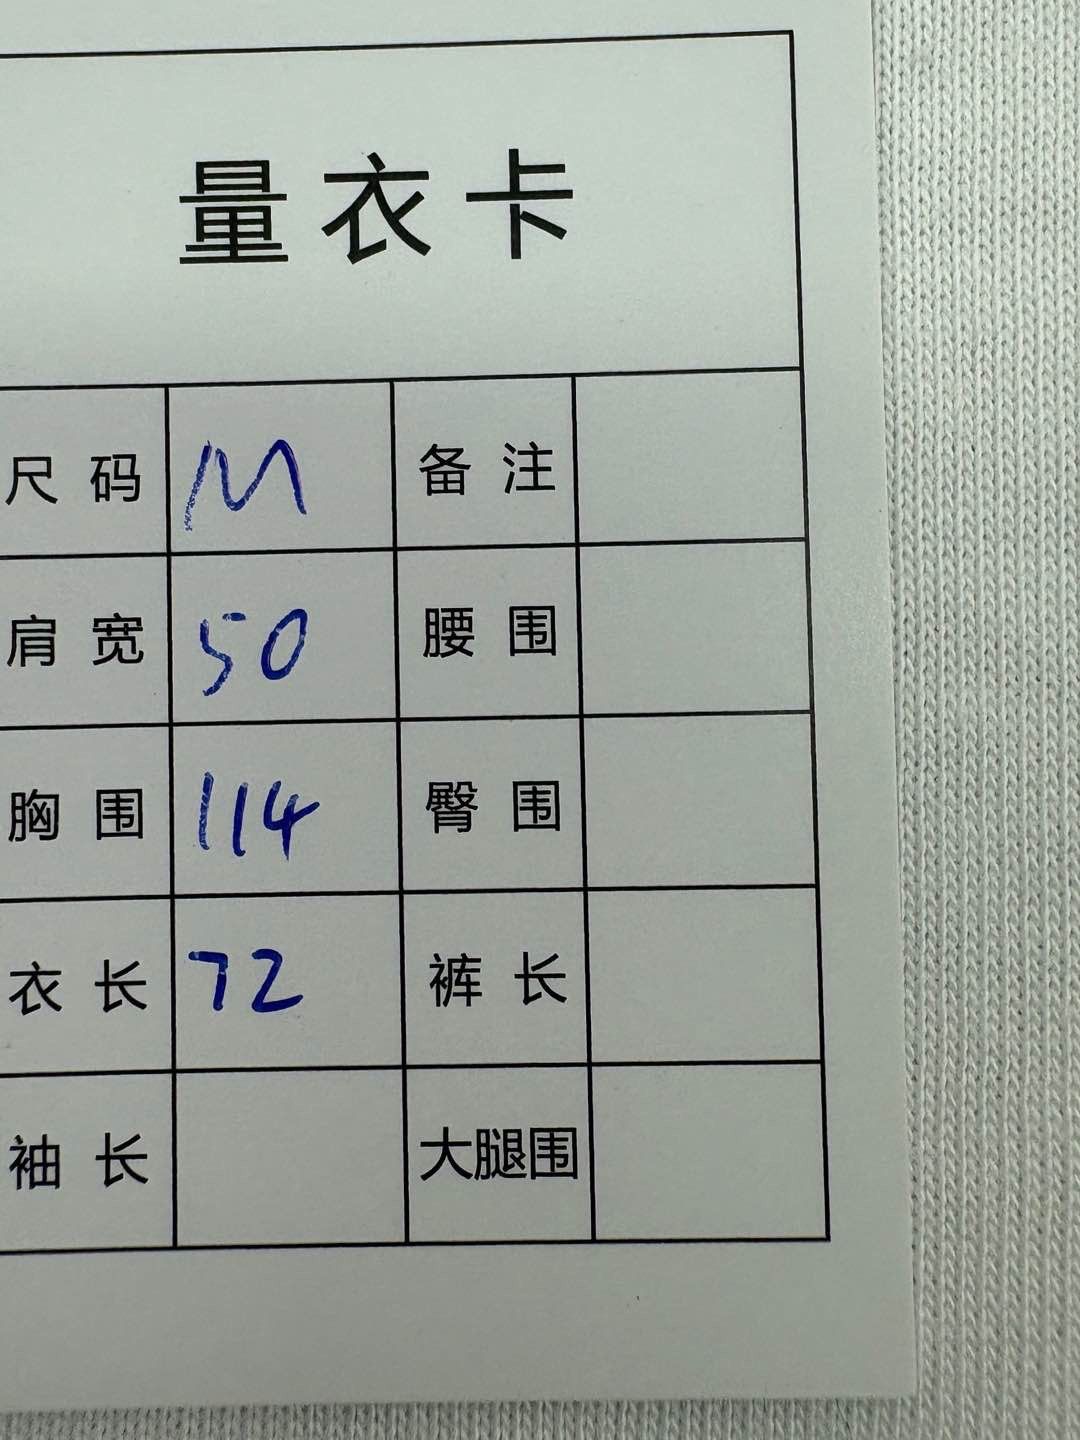 量衣卡
尺码 M 备注
肩宽 50 腰围
胸围 114 臀围
衣长 72 裤长
袖长 大腿围